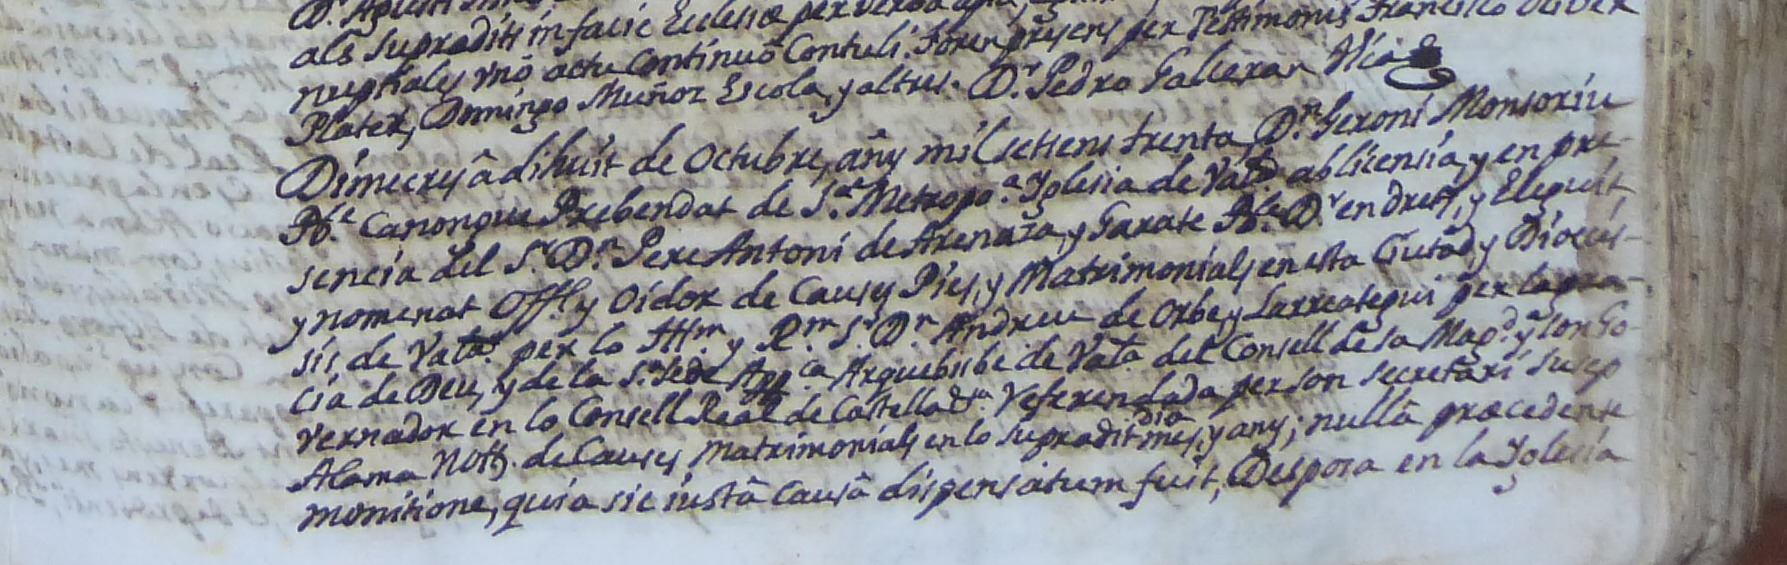 als supradits in facie Eclesiæ per verba
nuptiales vnò actu continuò Contuli. foren presens per Testimonis Francisco Oliver
Plater, Domingo Muñoz Escola, y altres. Dr. Pedro Galleran Vica
Dimecres â dihuit de Octubre, añy mil setsens trenta, Dn. Geroni Monsoriu
Pbe. Canonque Prebendat de Sta. Metropoa. Yglesia de Vala. ab licensia, y en pre-
sencia del Sr. Dn. Pere Antoni de Arenaza, y Garate Pbe. Dr. en drets, y Elegit,
y nomenat Offl. y Oidor de Causes Pies, y Matrimonials en esta Ciutad, y Diocis-
sis de Vala. per lo Illm. y Rm. Sr. Dn. Andreu de Orbe, y Larreategui per la gra-
cia de Deu, y de la Sta. Sede Appca. Arquebisbe de Vala. del Consell de sa Magd. y son Go-
vernador en lo Consell Real de Castella &a. Referendada per son secretari Jusep
Alama Notts. de Causes Matrimonials en lo supradit dia mes, y any; nullâ præcedente
monitione, quia sic iustâ Causâ dispensatum fuit, Desposa en la Yglesia